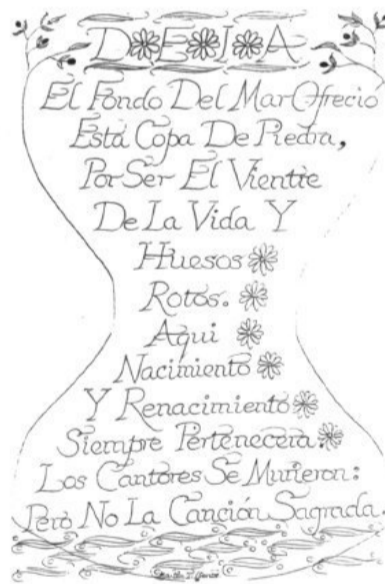 DEIA
El Fondo Del Mar Ofrecio
Esta Copa De Piedra,
Por Ser El Vientre
De La Vida Y
Huesos
Rotos.
Aqui
Nacimiento
Y Renacimiento
Siempre Pertenecera.
Los Cantores Se Murieron:
Pero No La Canción Sagrada.